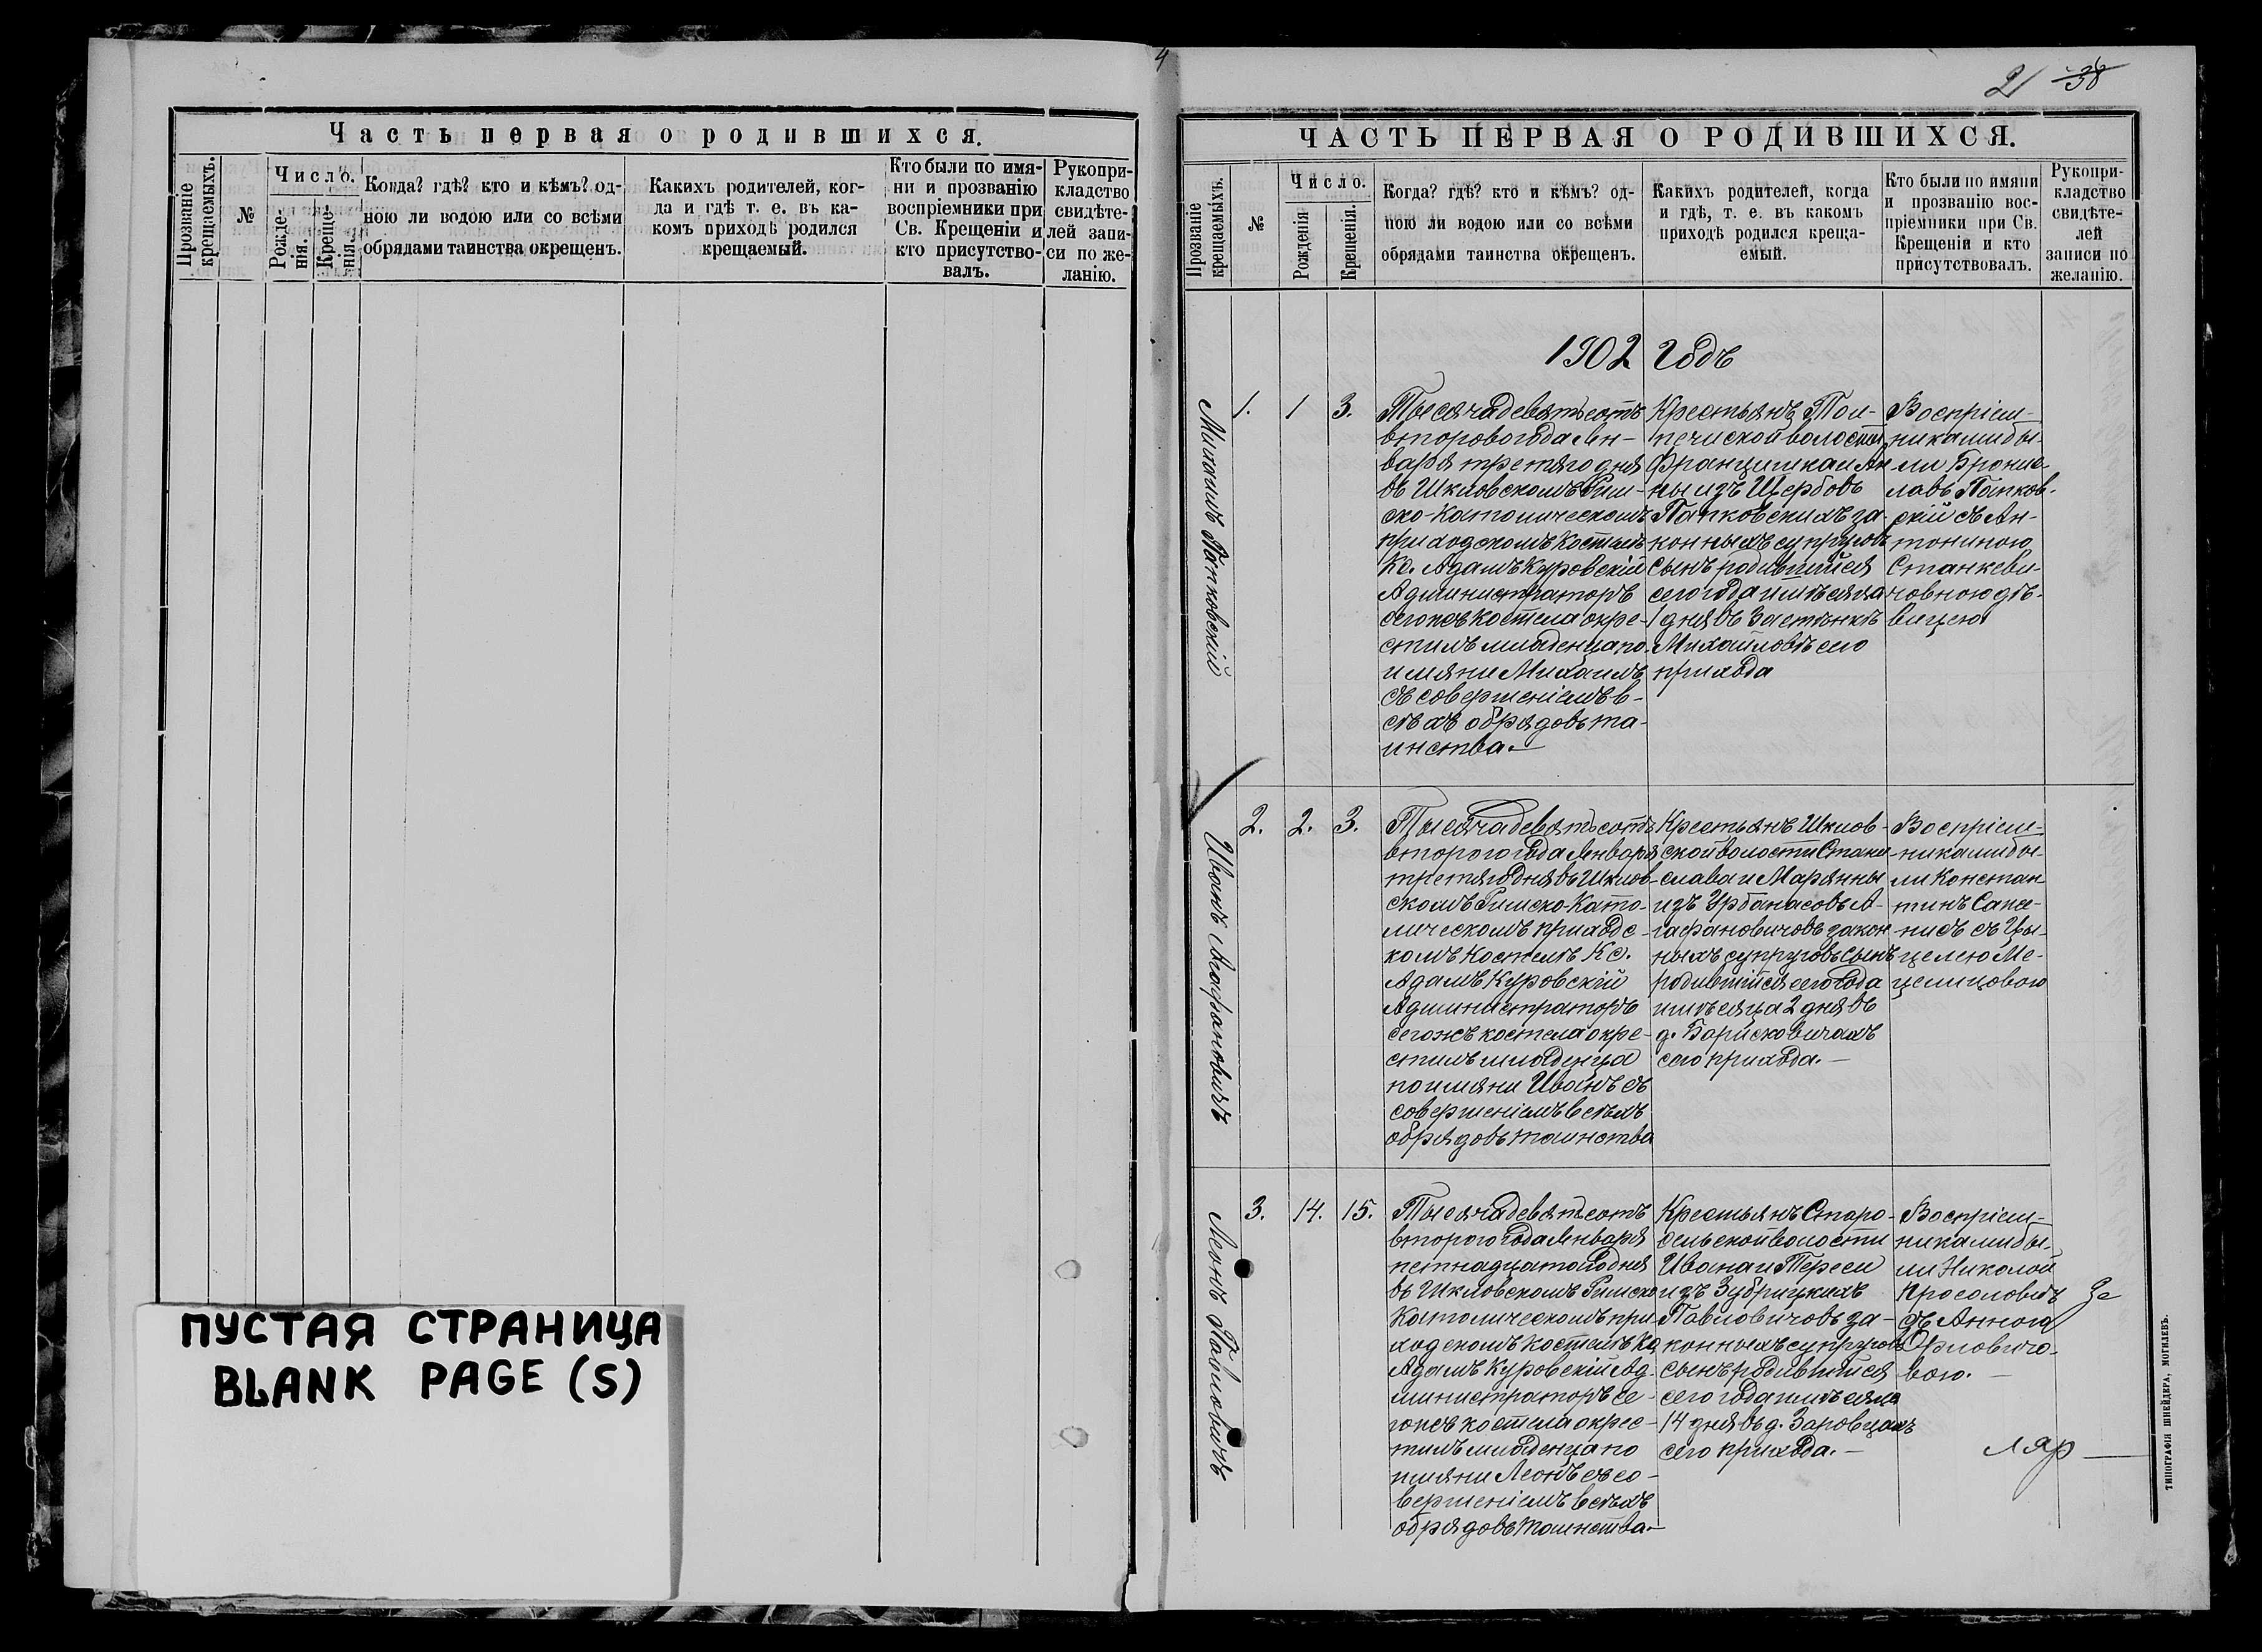 4
21 38
Часть первая о родившихся.
Прозваніе крещаемыхъ.
№
Число.
Рожденія.
Крещенія.
Когда? гдѣ? кто и кѣмъ? од-
ною ли водою или со всѣми
обрядами таинства окрещенъ.
Какихъ родителей, ког-
да и гдѣ т. е. въ ка-
комъ приходѣ родился
крещаемый.
Кто были по имя-
ни и прозванію
воспріемники при
Св. Крещеніи и
кто присутство-
валъ.
Рукопри-
кладство
свидѣте-
лей запи-
си по же-
ланію.
ПУСТАЯ СТРАНИЦА
BLANK PAGE (S)
ЧАСТЬ ПЕРВАЯ О РОДИВШИХСЯ.
Прозваніе
крещаемыхъ.
№
Число.
Рожденія
Крещенія.
Когда? гдѣ? кто и кѣмъ? од-
ною ли водою или со всѣми
обрядами таинства окрещенъ.
Какихъ родителей, когда
и гдѣ, т. е. въ какомъ
приходѣ родился креща-
емый.
Кто были по имяни
и прозванію вос-
пріемники при Св.
Крещеніи и кто
присутствовалъ.
Рукопри-
кладство
свидѣте-
лей
записи по
желанію.
1902 годъ
Михаилъ Папковскій
1. 1 3.
Тысяча девятьсотъ
второво года Ян-
варя третяго дня
въ Шкловскомъ Рим-
ско-Католическомъ
приходскомъ костелѣ
Кс. Адамъ Куровскій
Администраторъ
сегожъ костела окре-
стилъ младенца по
имяни Михаилъ
съ совершеніемъ в-
сѣхъ обрядовъ та-
инства.—
Крестьянъ Тол-
печиской волости
Францишка и Ан
ны изъ Щербовъ
Папковскихъ за-
конныхъ супруговъ
сынъ родившійся
сего года и мѣсяца
1 дня въ Застѣнкѣ
Михайловѣ сего
прихода
Воспріем-
никами бы-
ли Брони-
лавъ Папков-
скій съ Ан-
тониною
Станкеви-
човною дѣ-
вицею
Иванъ Агафановичъ
2. 2. 3.
Тысяча девятьсотъ
второго года Января
третяго дня въ Шклов-
скомъ Римско-Като-
лическомъ приходс-
комъ костелѣ Кс.
Адамъ Куровскій
Администраторъ
сегожъ костела окре-
стилъ младенца
по имяни Иванъ съ
совершеніемъ всѣхъ
обрядовъ таинства
Крестьянъ Шклов-
ской волости Стани-
слава и Марянны
изъ Урбанасовъ А-
гафановичовъ закон-
ныхъ супруговъ сынъ
родившійся сего года
и мѣсяца 2 дня въ
д. Барисковичахъ
сего прихода.—
Воспріем-
никами бы-
ли Констан
тинъ
съ
Леонъ Павловичъ
3. 14. 15.
Тысяча девятьсотъ
второго года Января
петнадцатого дня
въ Шкловскомъ Римско
Католическомъ при-
ходскомъ костелѣ Кс
Адамъ Куровскій Ад-
министраторъ се-
гожъ костела окрес-
тилъ младенца по
имяни Леонъ съ со-
вершеніемъ всѣхъ
обрядовъ таинства.—
Крестьянъ Старо-
сельской волости
Ивана и Тересы
изъ Зубрицкихъ
Павловичовъ за-
конныхъ супруговъ
сынъ родившійся
сего года и мѣсяца
14 дня въ д. Заровцахъ
сего прихода.—
Воспріем-
никами бы-
ли Николай
съ Анною
Орловичо-
вою.—
ТИПОГРАФІЯ ШНЕЙДЕРА, МОГИЛЕВЪ.